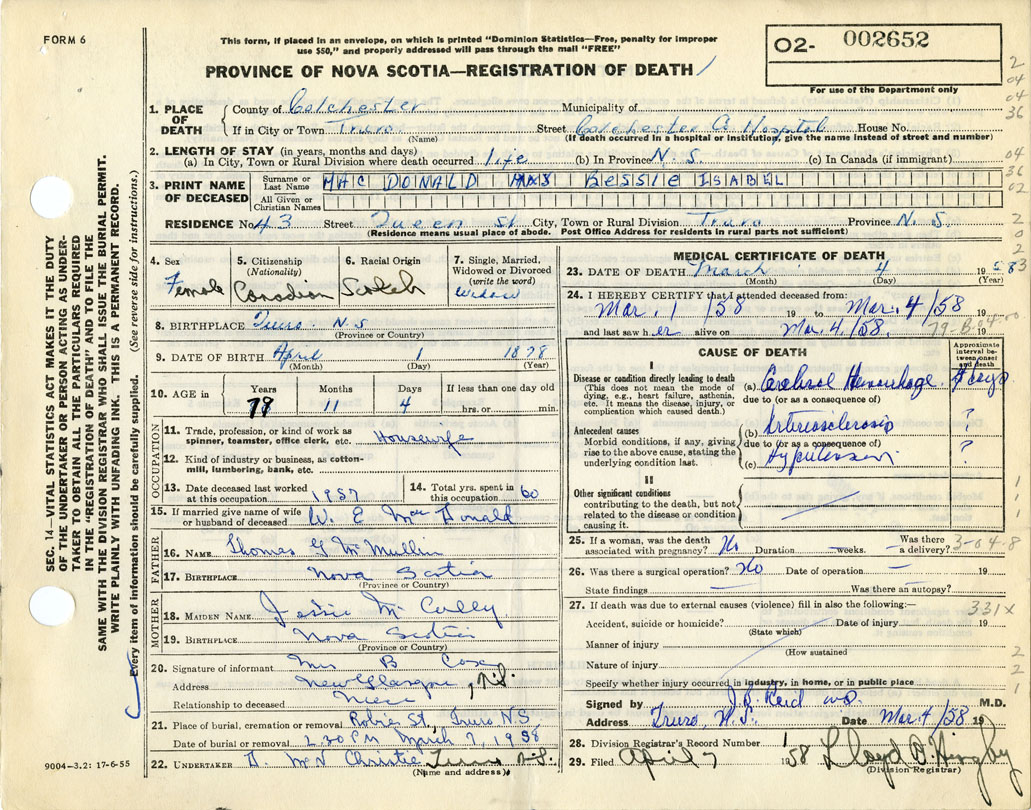 FORM 6
This form, if placed in an envelope, on which is printed "Dominion Statistics—Free, penalty for improper
use $50," and properly addressed will pass through the mail "FREE"
O2- 002652
PROVINCE OF NOVA SCOTIA—REGISTRATION OF DEATH
For use of the Department only
1. PLACE OF DEATH
County of Colchester Municipality of
If in City or Town Truro Street Colchester Co Hospital House No.
(Name) (If death occurred in a hospital or institution, give the name instead of street and number)
2. LENGTH OF STAY (in years, months and days)
(a) In City, Town or Rural Division where death occurred life (b) In Province N. S. (c) In Canada (if immigrant)
3. PRINT NAME OF DECEASED
Surname or Last Name MAC DONALD MRS BESSIE ISABEL
All Given or Christian Names
RESIDENCE No. 43 Street Queen St City, Town or Rural Division Truro Province N. S.
(Residence means usual place of abode. Post Office Address for residents in rural parts not sufficient)
4. Sex Female
5. Citizenship (Nationality) Canadian
6. Racial Origin Scotch
7. Single, Married, Widowed or Divorced (write the word) Widow
8. BIRTHPLACE Truro N S
(Province or Country)
9. DATE OF BIRTH April 1 1878
(Month) (Day) (Year)
10. AGE in Years Months Days If less than one day old
79 11 4 hrs. or min.
OCCUPATION
11. Trade, profession, or kind of work as spinner, teamster, office clerk, etc. Housewife
12. Kind of industry or business, as cotton-mill, lumbering, bank, etc.
13. Date deceased last worked at this occupation 1957
14. Total yrs. spent in this occupation 60
15. If married give name of wife or husband of deceased W. E. MacDonald
FATHER
16. NAME Thomas G McMullin
17. BIRTHPLACE Nova Scotia
(Province or Country)
MOTHER
18. MAIDEN NAME Jessie McCulley
19. BIRTHPLACE Nova Scotia
(Province or Country)
20. Signature of informant Mrs B Cox
Address New Glasgow, N.S.
Relationship to deceased Niece
21. Place of burial, cremation or removal Robie St, Truro N S
Date of burial or removal 2.30 PM March 7, 1958
22. UNDERTAKER A. McN Christie Truro N.S.
(Name and address)
9004—3.2: 17-6-55
SEC. 14—VITAL STATISTICS ACT MAKES IT THE DUTY
OF THE UNDERTAKER OR PERSON ACTING AS UNDER-
TAKER TO OBTAIN ALL THE PARTICULARS REQUIRED
IN THE "REGISTRATION OF DEATH" AND TO FILE THE
SAME WITH THE DIVISION REGISTRAR WHO SHALL ISSUE THE BURIAL PERMIT.
WRITE PLAINLY WITH UNFADING INK. THIS IS A PERMANENT RECORD.
Every item of information should be carefully supplied. (See reverse side for instructions.)
MEDICAL CERTIFICATE OF DEATH
23. DATE OF DEATH March 4 1958
(Month) (Day) (Year)
24. I HEREBY CERTIFY that I attended deceased from:
Mar. 1 /58 19 to Mar. 4 /58 19
and last saw her alive on Mar. 4/58. 19
CAUSE OF DEATH
Approximate interval between onset and death
I
Disease or condition directly leading to death
(This does not mean the mode of dying, e.g., heart failure, asthenia, etc. It means the disease, injury, or complication which caused death.)
(a) Cerebral Hemorrhage. 4 days
due to (or as a consequence of)
Antecedent causes
Morbid conditions, if any, giving rise to the above cause, stating the underlying condition last.
(b) Arteriosclerosis ?
due to (or as a consequence of)
(c) Hypertension ?
II
Other significant conditions
contributing to the death, but not related to the disease or condition causing it.
25. If a woman, was the death associated with pregnancy? No Duration —weeks. Was there a delivery? 3-04-8
26. Was there a surgical operation? No Date of operation — 19
State findings — Was there an autopsy?
27. If death was due to external causes (violence) fill in also the following:— 331X
Accident, suicide or homicide? Date of injury 19
(State which)
Manner of injury
(How sustained
Nature of injury
Specify whether injury occurred in industry, in home, or in public place
Signed by J.B. Reid M.D. M.D.
Address Truro, N.S. Date Mar. 4/58 19
28. Division Registrar's Record Number 1
29. Filed April 7 1958
(Division Registrar)